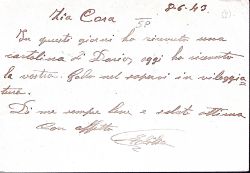 Zia Cara 8-6-43
In questi giorni ho ricevuto una
cartolina di Dario, oggi ho ricevuto
la vostra. Godo nel sapervi in villeggia
tura.
Di me sempre bene e salute ottima
Con affetto